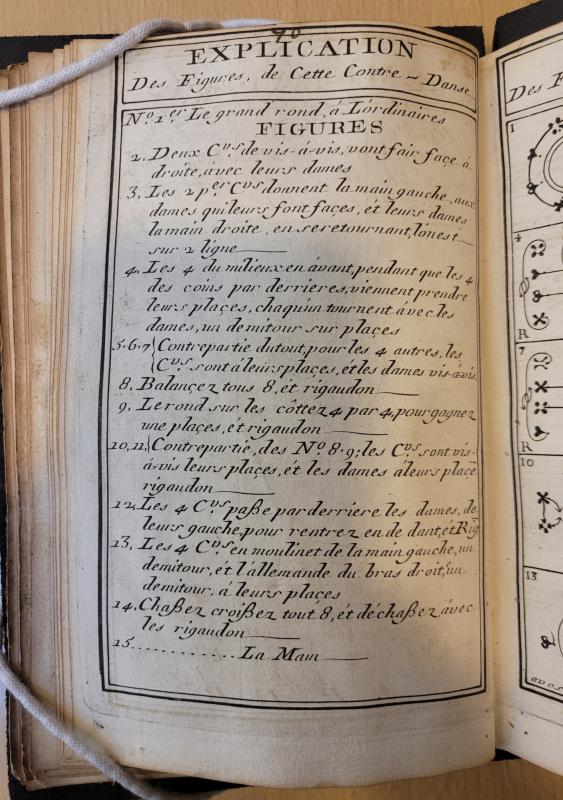 90
EXPLICATION
Des Figures, de Cette Contre - Danse
No. 1er Le grand rond, á Lórdinaires
FIGURES
2. Deux Cvs de vis-à-vis, vont fair façe à
droite, àvec leurs dames
3. Les 2 per Cvs donnent la main gauche, aux
dames qui leurs font façes, ét leurs dames
la main droite, en se retournant, lónest
sur 2 ligne
4. Les 4 du milieux en ávant, pendant que les 4
des coins par derrieres, viennent prendre
leurs plaçes, chaqúun tournent àvec les
dames, un demitour sur plaçes
5.6.7 { Contrepartie dutout, pour les 4 autres, les
Cvs sont á leurs plaçes, ét les dames vis-à-vis
8. Balançez tous 8, ét rigaudon
9. Le rond sur les côttez 4 par 4, pour gagnez
une plaçes, ét rigaudon
10, 11, { Contrepartie, des No 8.9; les Cvs sont vis-
à-vis leurs plaçes, ét les dames á leurs plaçe
rigaudon
12. Les 4 Cvs paße par derriere les dames, de
leurs gauche, pour rentrez en de dant, ét Rig
13. Les 4 Cvs en moulinet de la main gauche, un
demitour, ét l'allemande du bras droit, un
demitour, á leurs plaçes
14. Chaßez croißez tout 8, ét déchaßez àvec
les rigaudon
15 . . . . . . . . . . . . La Main
Des F
1
4
R
7
R
10
13
avos